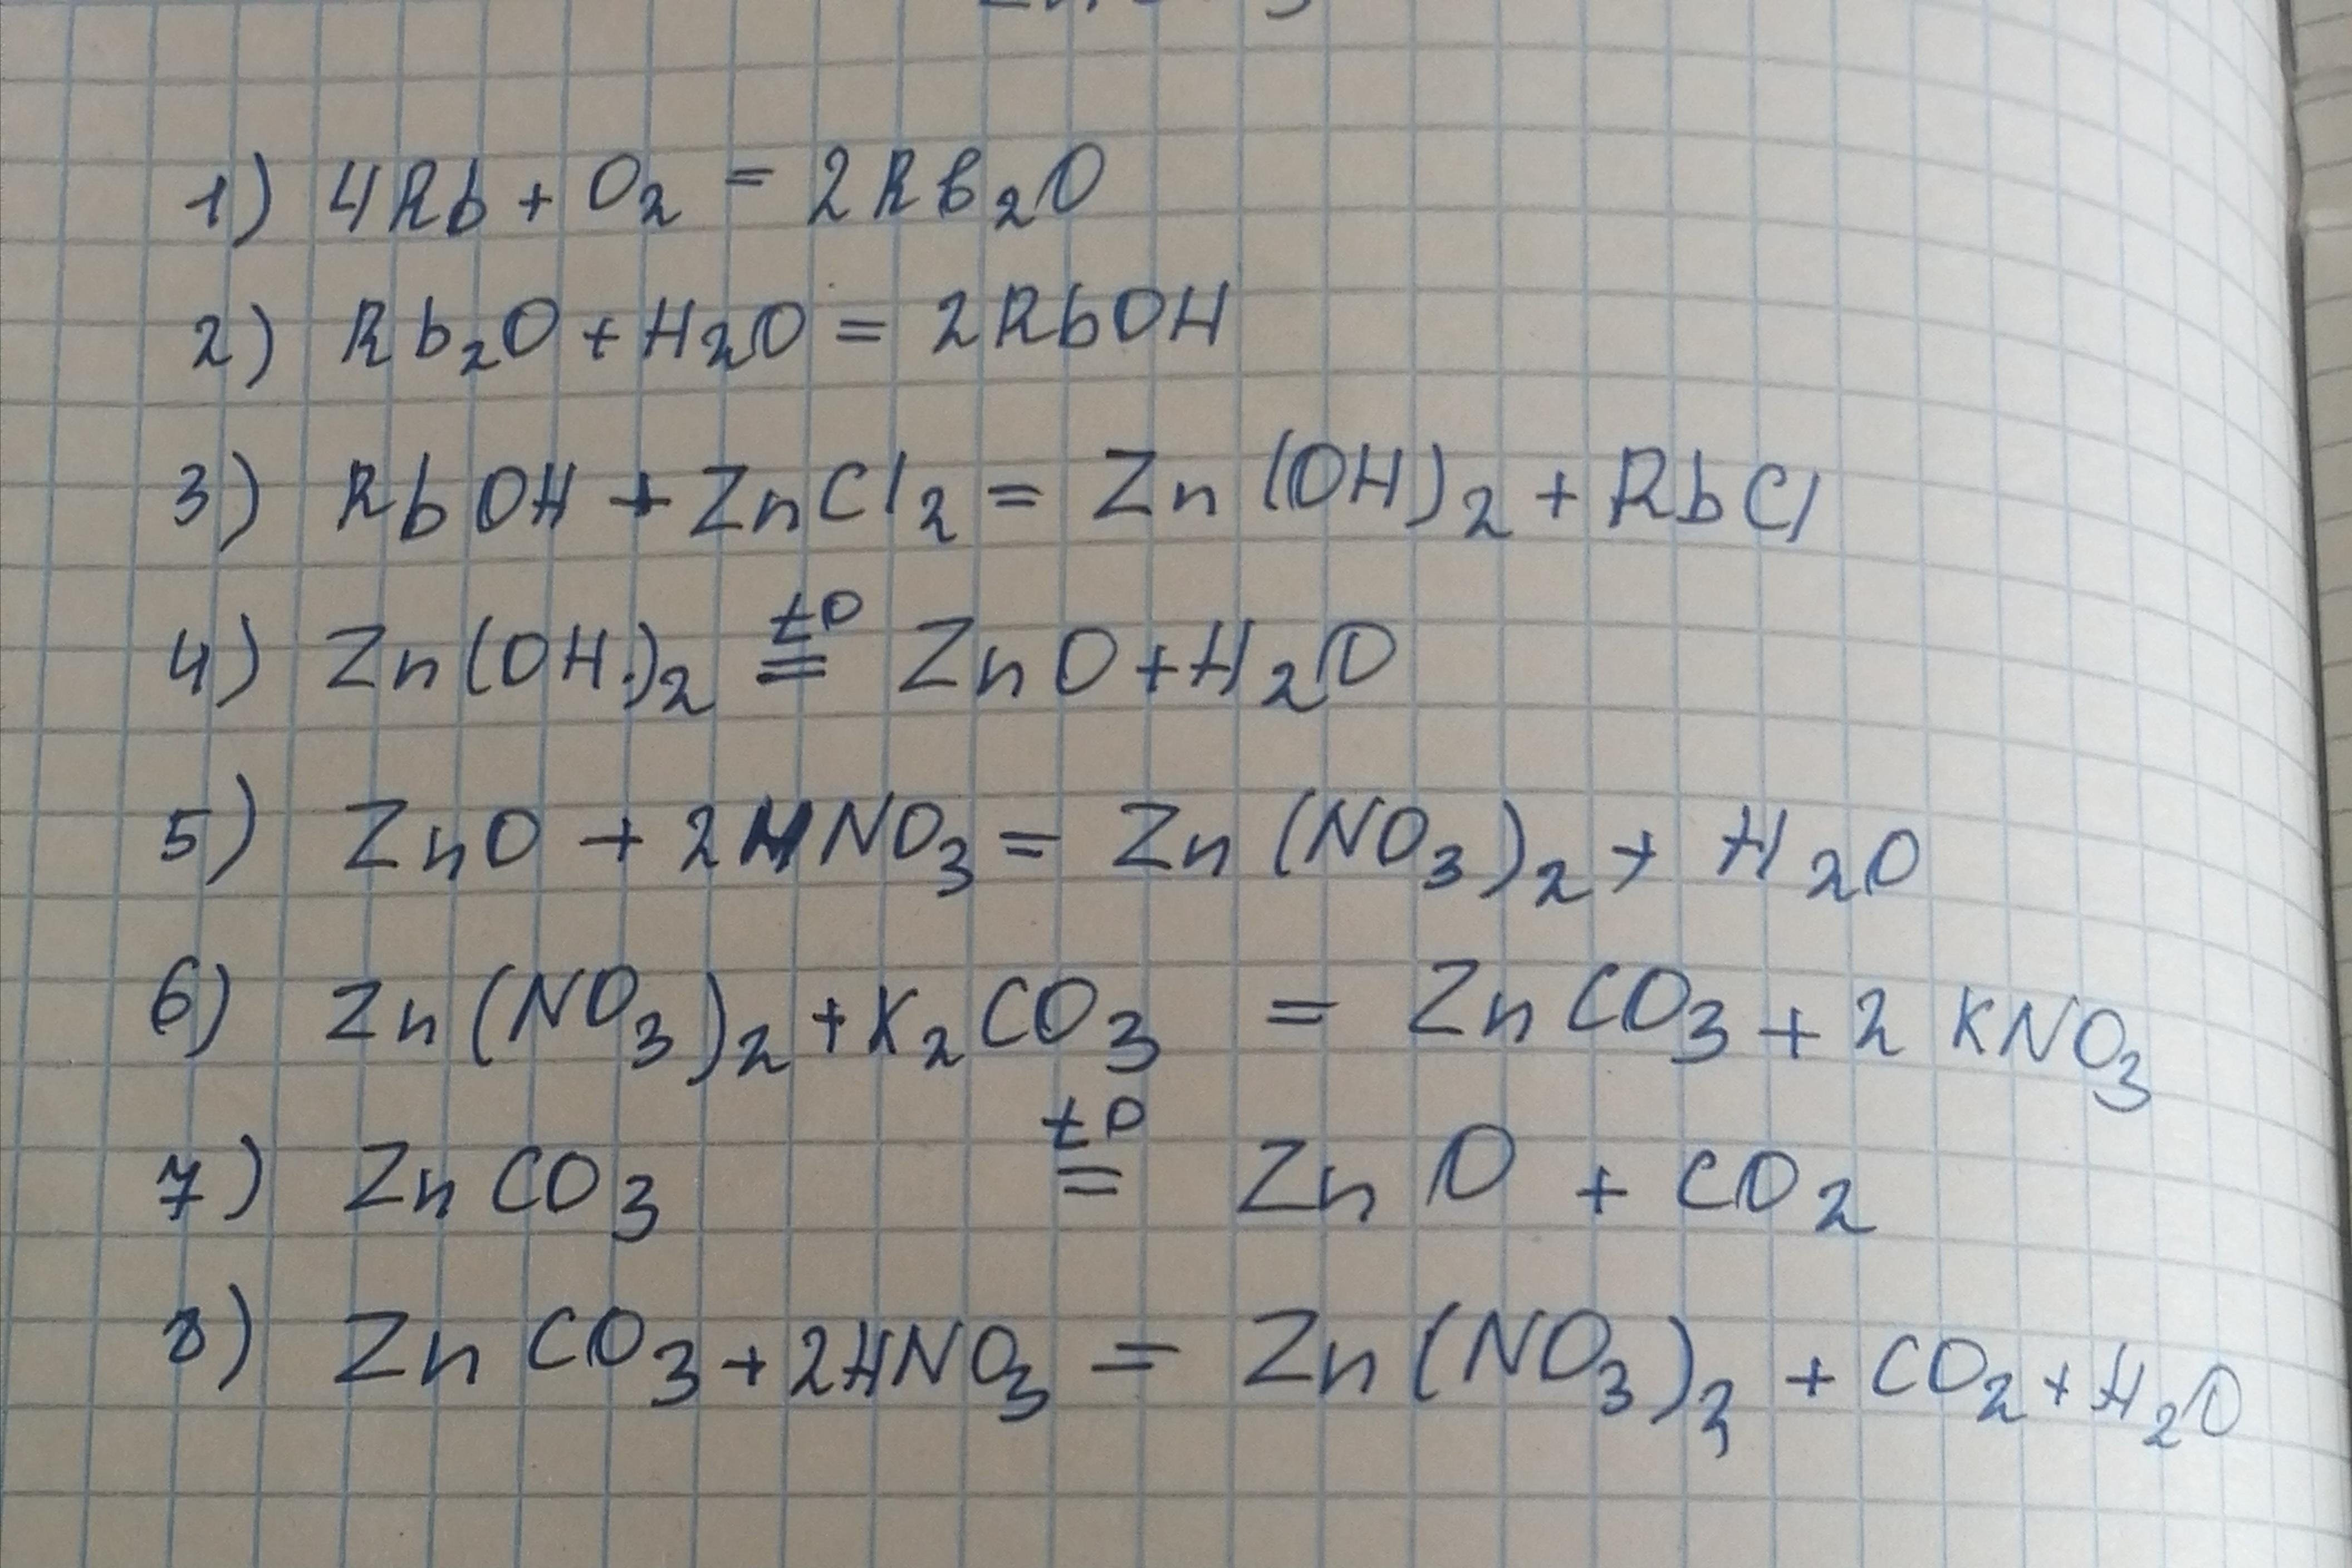 1) 4Rb + O₂ = 2Rb₂O
2) Rb₂O + H₂O = 2RbOH
3) RbOH + ZnCl₂ = Zn(OH)₂ + RbCl
4) Zn(OH)₂ =^(t°) ZnO + H₂O
5) ZnO + 2HNO₃ = Zn(NO₃)₂ + H₂O
6) Zn(NO₃)₂ + K₂CO₃ = ZnCO₃ + 2KNO₃
7) ZnCO₃ =^(t°) ZnO + CO₂
8) ZnCO₃ + 2HNO₃ = Zn(NO₃)₂ + CO₂ + H₂O